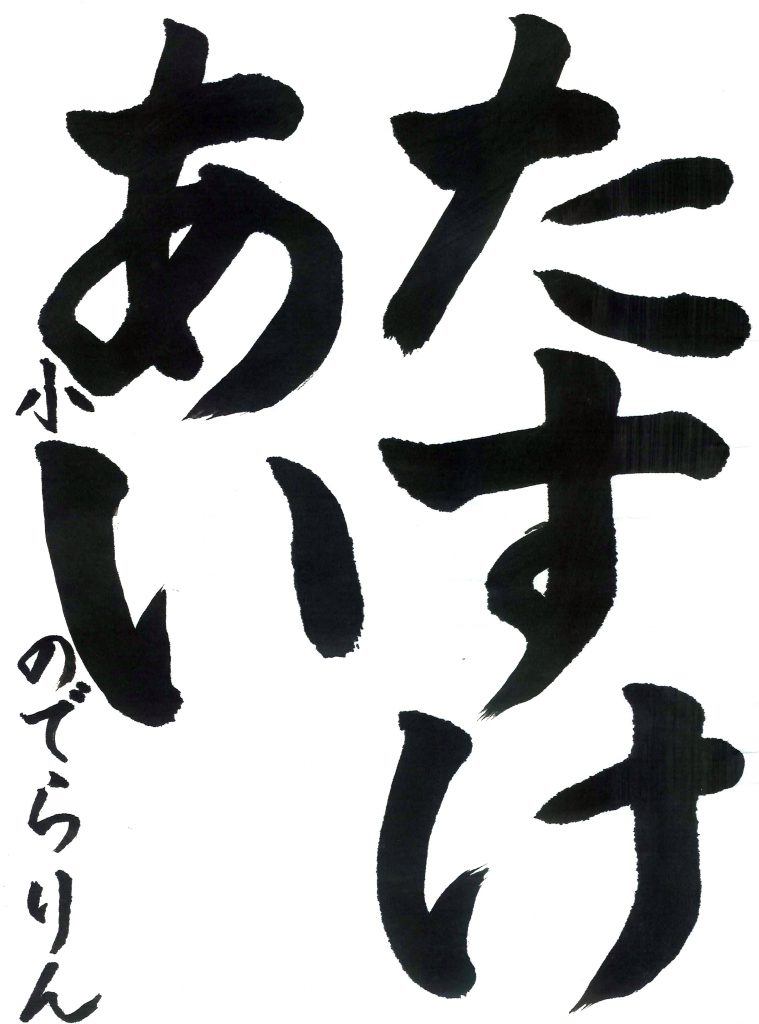 たすけ
あい
小 のでらりん